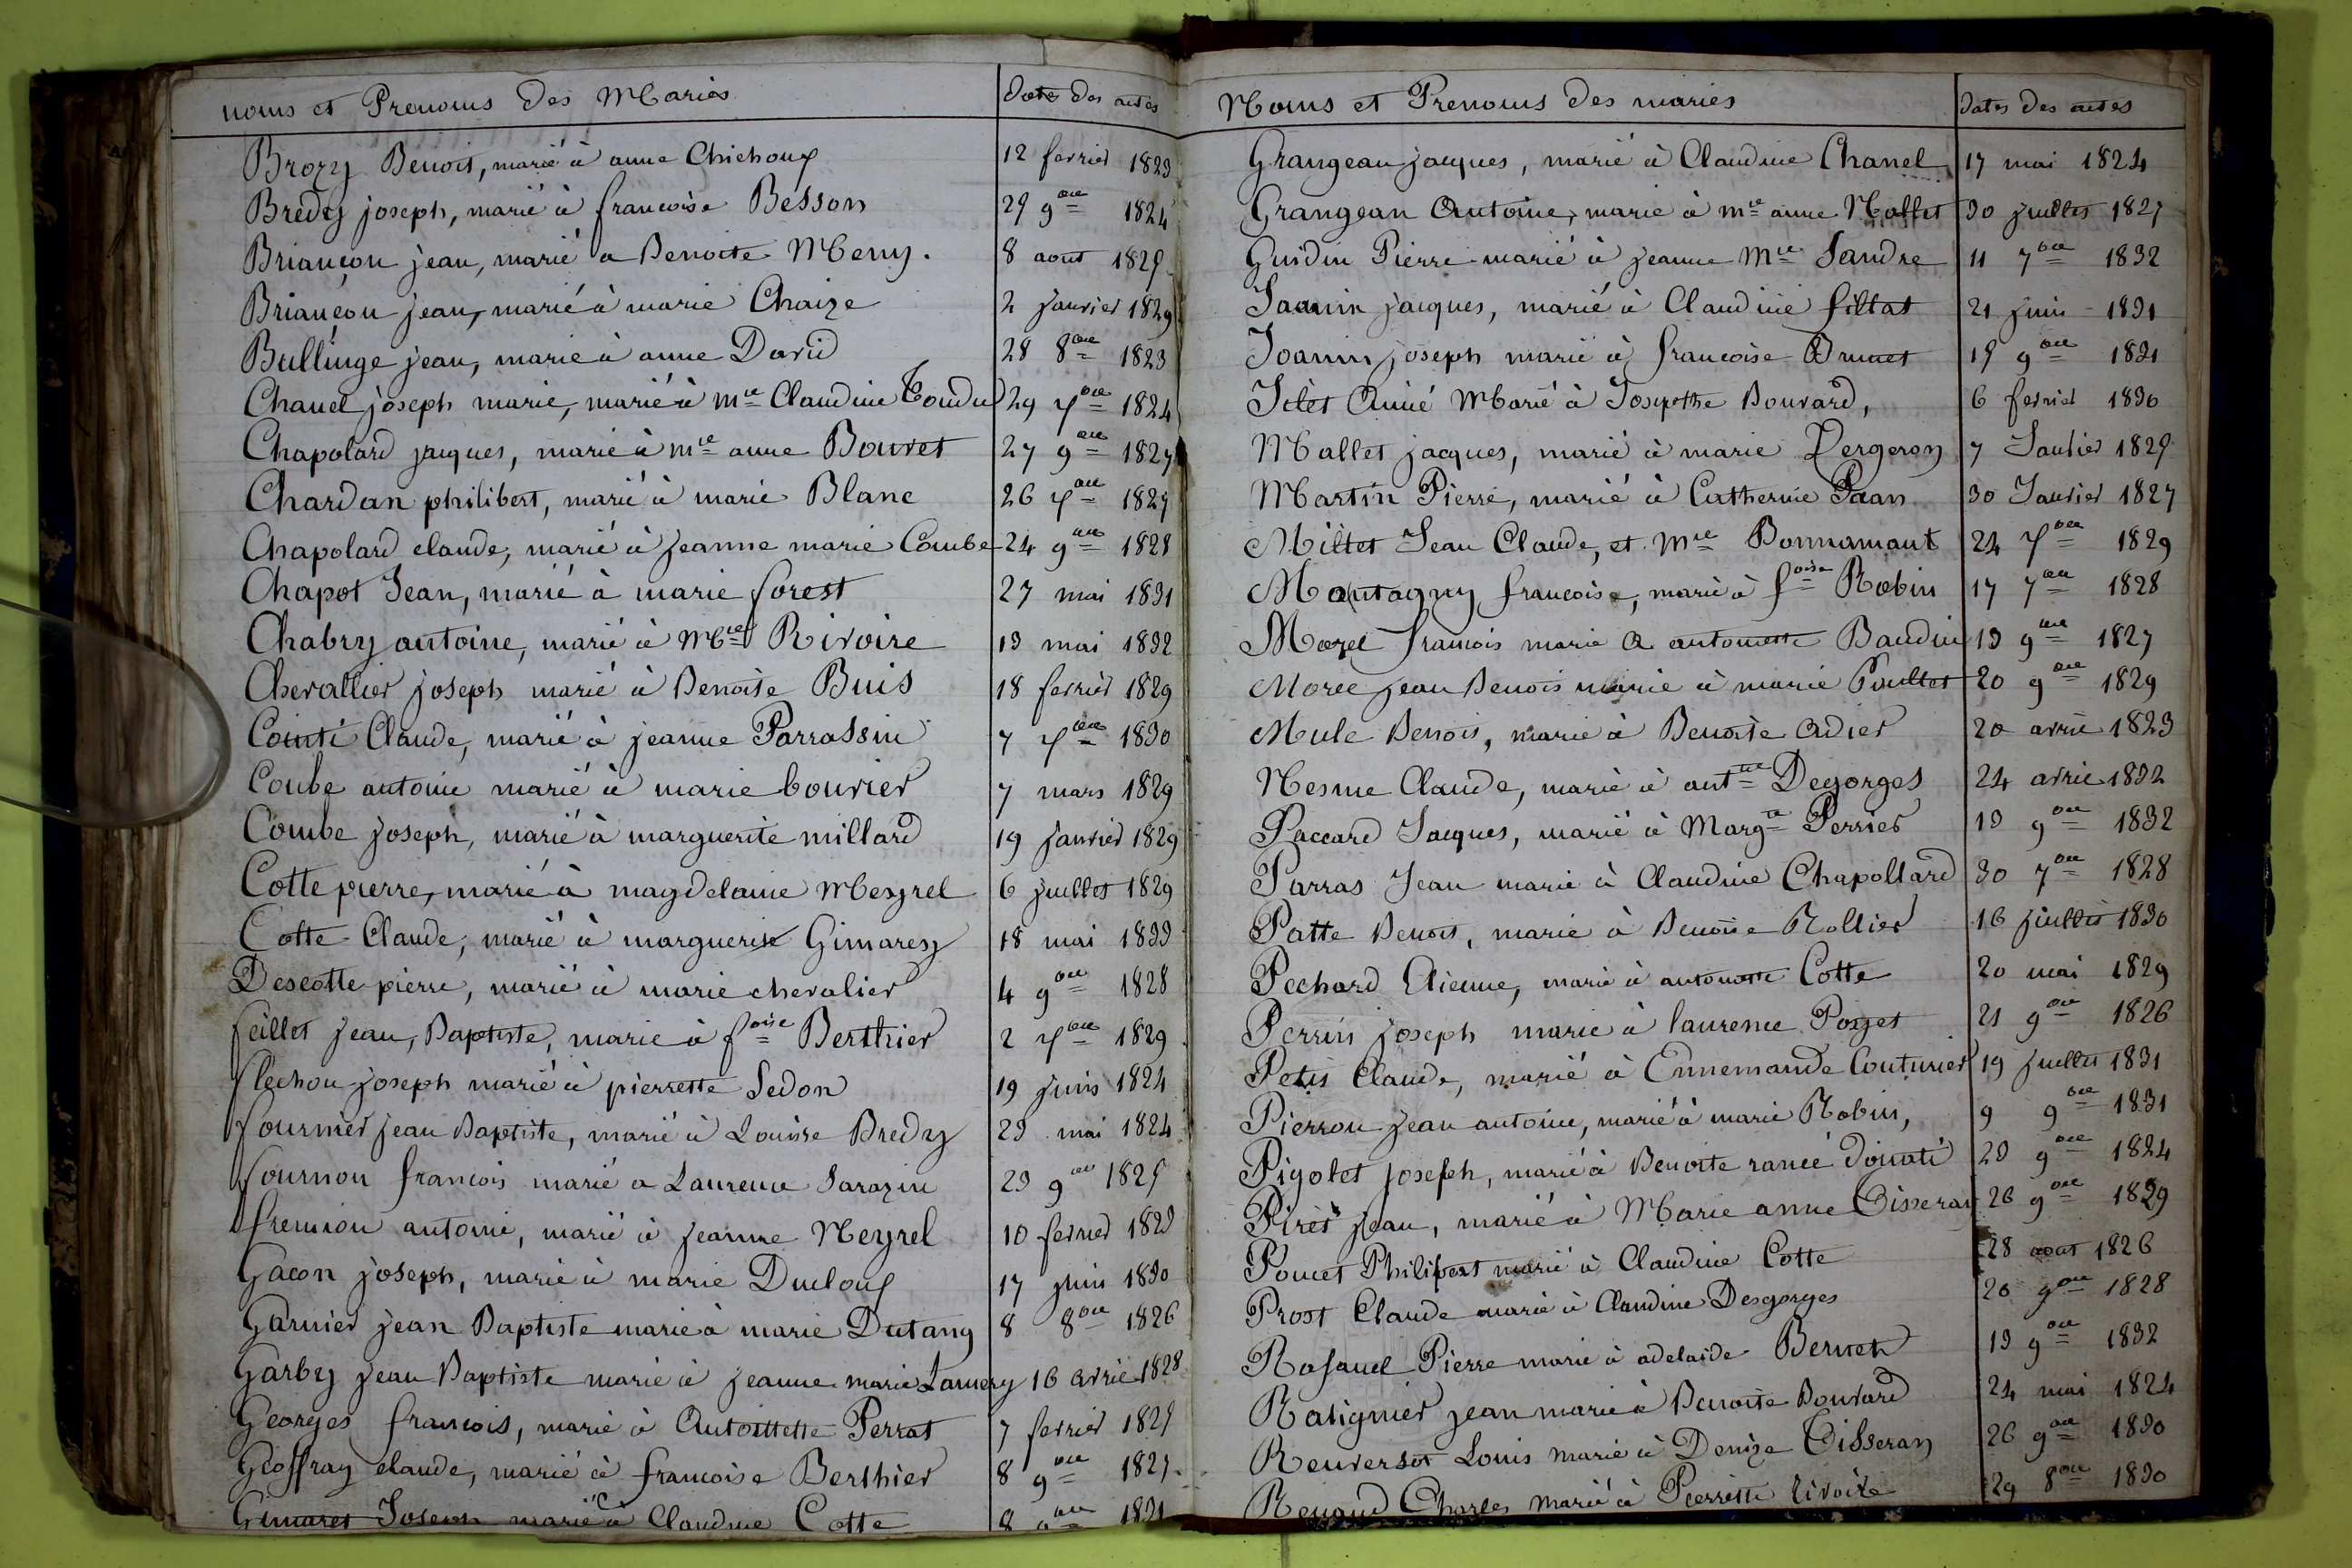 noms et Prenoms des Mariés dates des actes
Brozy Benoit, marié à anne Chichoux 12 fevrier 1823
Bredy joseph, marié à francoise Besson 29 9bre 1824
Briançon jean, marié a Benoite Meny. 8 aout 1825
Briançon jean, marié à marie Chaize 2 janvier 1829
Bullinge jean, marié à anne David 28 8bre 1823
Chanel joseph marie, marié à mie Claudine Coudu 29 7bre 1824
Chapolard jacques, marié à mie anne Bouvet 27 9bre 1827
Chardan philibert, marié à marie Blanc 26 7bre 1827
Chapolard claude, marié à jeanne marie Combe 24 9bre 1828
Chapot Jean, marié à marie forest 27 mai 1831
Chabry antoine, marié à Mie Rivoire 13 mai 1832
Chevallier joseph marié à Benoite Buis 18 fevrier 1829
Cointi Claude, marié à jeanne Parrassin 7 7bre 1830
Coube antoine marié à marie bouvier 7 mars 1829
Combe joseph, marié à marguerite millard 19 janvier 1829
Cotte pierre, marié à magdelaine Meyrel 6 juillet 1829
Cotte Claude, marié à marguerite Gimarey 18 mai 1833
Descotte pierre, marié à marie chevalier 4 9bre 1828
feillet jean, Baptiste, marié à foise Berthier 2 7bre 1829
flechon joseph marié à pierrette Sedon 19 juin 1824
fournier jean Baptiste, marié à Louise Bredy 23 mai 1824
fournon francois marié a Laurence Sarazin 23 9bre 1825
fremion antoine, marié à jeanne Neyrel 10 fevrier 1823
Gacon joseph, marié à marie Ducloux 17 juin 1830
Garnier jean Baptiste marié à marie Dutang 8 8bre 1826
Garby jean Baptiste marié à jeanne marie Lamery 16 avril 1828
Georges francois, marié à Antoittette Perrat 7 fevrier 1825
Geoffray claude, marié à francoise Berthier 8 9bre 1827
Gimaret Joseph marié à Claudine Cotte 8 9bre 1831
Noms et Prenoms des mariés dates des actes
Grangean jacques, marié à Claudine Chanel 17 mai 1824
Grangean Antoine, marié à mie anne Nallet 30 juillet 1827
Guidin Pierre marié à jeanne Mie Sandre 11 7bre 1832
Joanin jacques, marié à Claudine fillat 21 juin 1831
Joanin joseph marié à francoise Brunet 15 9bre 1831
Jolet Aimé Marié à Josepthe Bouvard, 6 fevrier 1830
Mallet jacques, marié à marie Vergeron 7 Janvier 1825
Martin Pierre, marié à Catherine Paan 30 Janvier 1827
Millet Jean Claude, et Mie Bonnamant 24 7bre 1829
Montagny francoise, marié à foise Robin 17 7bre 1828
Mozel francois marié a antoinette Baudin 13 9bre 1827
Morel jean Benois marié à marie Poullet 20 9bre 1829
Mule Benois, marié à Benoite adier 20 avril 1823
Nesme Claude, marié à antte Degorges 24 avril 1832
Paccard Jacques, marié à Margte Perrier 13 9bre 1832
Parras Jean marié à Claudine Chapollard 30 7bre 1828
Patte Benoit, marié à Benoite Rollier 16 juillet 1830
Pechard Etienne, marié à antoinette Cotte 20 mai 1829
Perrin joseph marié à laurence Poyet 21 9bre 1826
Petit Claude, marié à Ennemande Couturier 19 juillet 1831
Pierron jean antoine, marié à marie Robin, 9 9bre 1831
Pigolet joseph, marié à Benoite ranée Donati 23 9bre 1824
Piret jean, marié à Marie anne Tisseran 26 9bre 1829
Poncet Philibert marié à Claudine Cotte 28 aout 1826
Prost Claude marié à Claudine Desgorges 20 9bre 1828
Rafanel Pierre marié à adelaide Berneth 13 9bre 1832
Ratignier jean marié à Benoite Bouvard 24 mai 1824
Reuverset Louis marié à Denize Tisseran 26 9bre 1830
Renaud Charles marié à Pierrette rivoire 29 8bre 1830